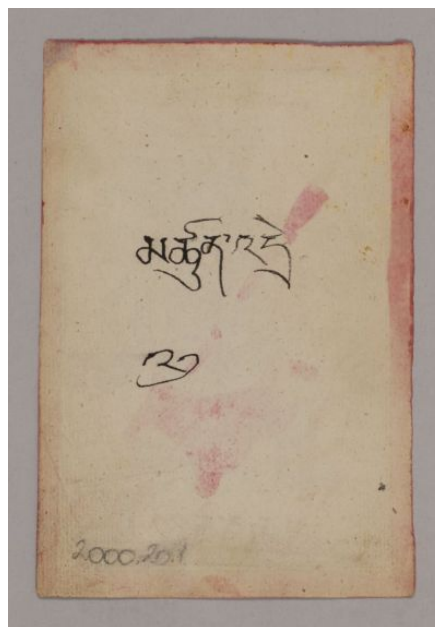 མཚུན་འདྲེ
2000.20.1